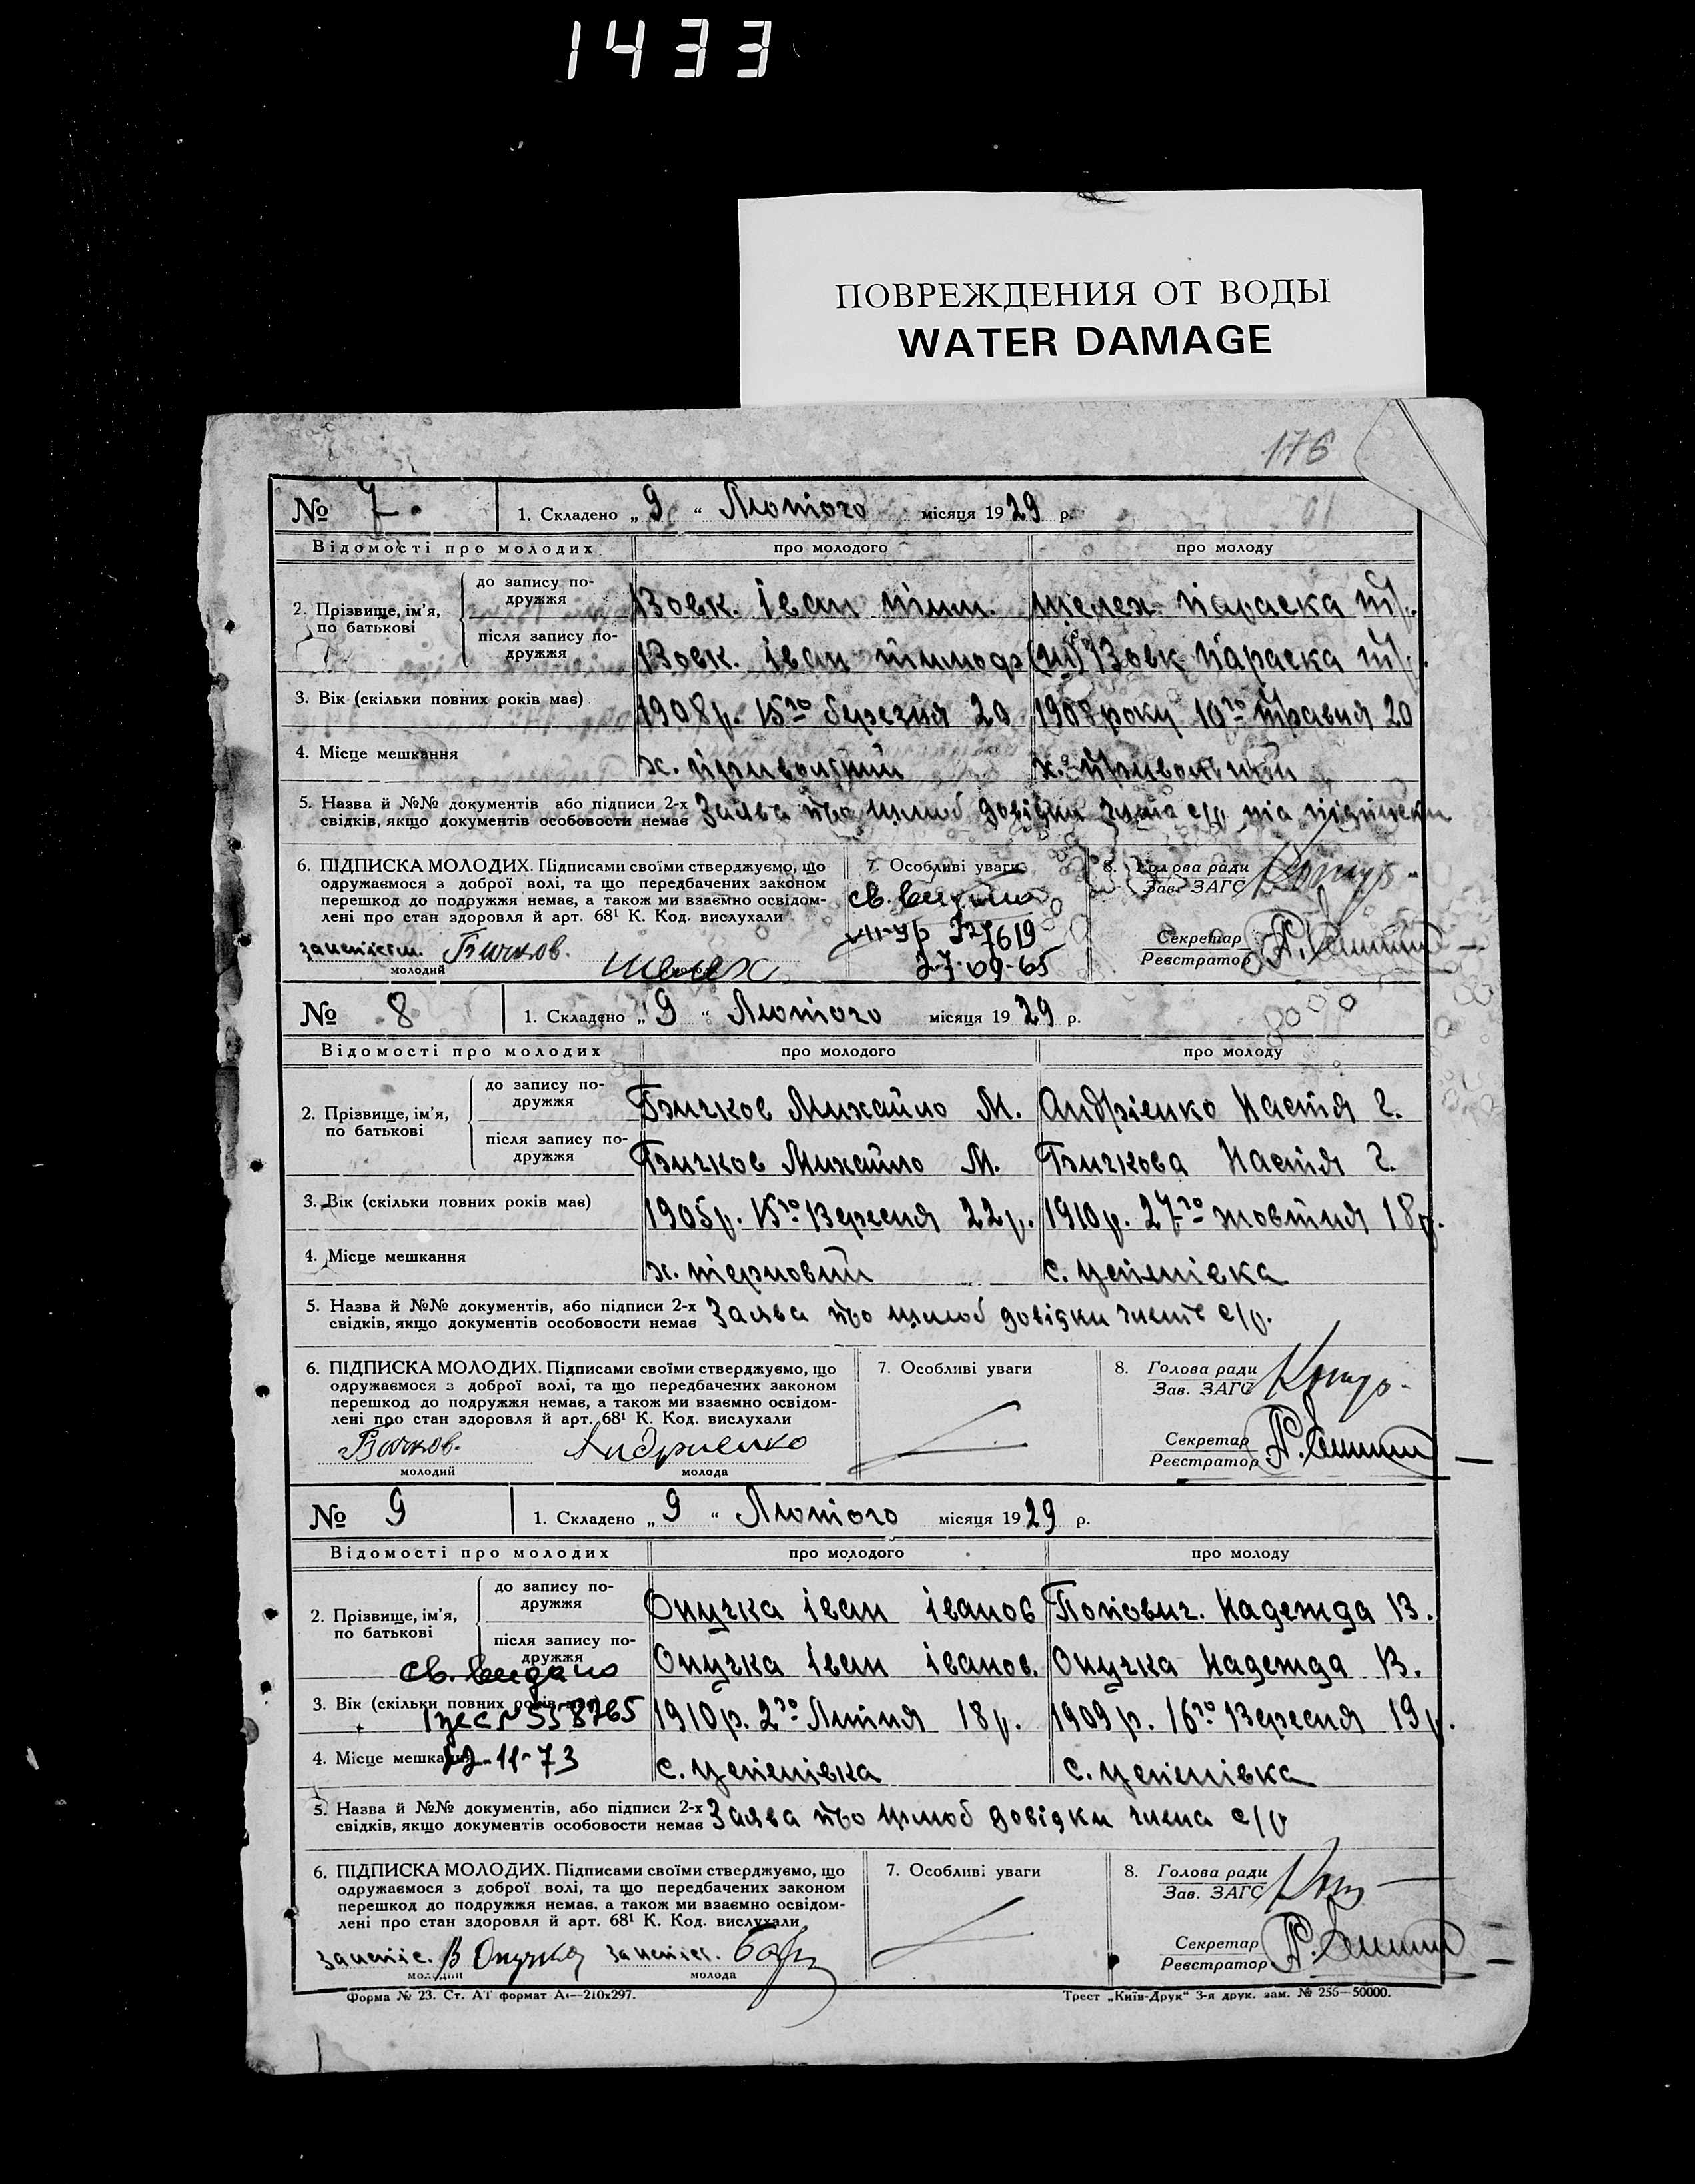 1433
ПОВРЕЖДЕНИЯ ОТ ВОДЫ
WATER DAMAGE
176
№ 7. 1. Складено „ 9 “ Лютого місяця 1929 р.
Відомості про молодих про молодого про молоду
2. Прізвище, ім'я, по батькові
до запису по-дружжя Вовк. Іван Тим. Шелех Параска Т.
після запису по-дружжя Вовк. Іван Тимоф. Вовк Параска Т.
3. Вік (скільки повних років має) 1908 р. 15го березня 20 1908 року 10го травня 20
4. Місце мешкання х. Привольний х. Привольний
5. Назва й №№ документів або підписи 2-х Заява про шлюб довідки
свідків, якщо документів особовости немає
6. ПІДПИСКА МОЛОДИХ. Підписами своїми стверджуємо, що
одружаємося з доброї волі, та що передбачених законом
перешкод до подружжя немає, а також ми взаємно освідом-
лені про стан здоровля й арт. 68¹ К. Код. вислухали
Бичков. Шелех
молодий
7. Особливі уваги
св. видано
327619
27-09-65
8. Голова ради
Зав. ЗАГС
Секретар
Реєстратор
№ 8 1. Складено „ 9 “ Лютого місяця 1929 р.
Відомості про молодих про молодого про молоду
2. Прізвище, ім'я, по батькові
до запису по-дружжя Бичков Михайло М. Андрієнко Настя Г.
після запису по-дружжя Бичков Михайло М. Бичкова Настя Г.
3. Вік (скільки повних років має) 1905 р. 15го Вересня 22 р. 1910 р. 27го жовтня 18 р.
4. Місце мешкання х. Терновий с. Цепенівка
5. Назва й №№ документів, або підписи 2-х Заява про шлюб довідки с/р.
свідків, якщо документів особовости немає
6. ПІДПИСКА МОЛОДИХ. Підписами своїми стверджуємо, що
одружаємося з доброї волі, та що передбачених законом
перешкод до подружжя немає, а також ми взаємно освідом-
лені про стан здоровля й арт. 68¹ К. Код. вислухали
Бичков. Андриенко
молодий молода
7. Особливі уваги
8. Голова ради
Зав. ЗАГС
Секретар
Реєстратор
№ 9 1. Складено „ 9 “ Лютого місяця 1929 р.
Відомості про молодих про молодого про молоду
2. Прізвище, ім'я, по батькові
до запису по-дружжя Онучка Іван Іванов Попович. Надежда В.
після запису по-дружжя Онучка Іван Іванов. Онучка Надежда В.
св. видано
3. Вік (скільки повних років має) 1910 р. 2го Липня 18 р. 1909 р. 16го Вересня 19 р.
№ 558765
4. Місце мешкання с. Цепенівка с. Цепенівка
22-11-73
5. Назва й №№ документів, або підписи 2-х Заява про шлюб довідки с/р
свідків, якщо документів особовости немає
6. ПІДПИСКА МОЛОДИХ. Підписами своїми стверджуємо, що
одружаємося з доброї волі, та що передбачених законом
перешкод до подружжя немає, а також ми взаємно освідом-
лені про стан здоровля й арт. 68¹ К. Код. вислухали
Онучка
молодий молода
7. Особливі уваги
8. Голова ради
Зав. ЗАГС
Секретар
Реєстратор
Форма № 23. Ст. АТ формат А4—210х297. Трест „Київ-Друк“ 3-я друк. зам. № 255—50000.